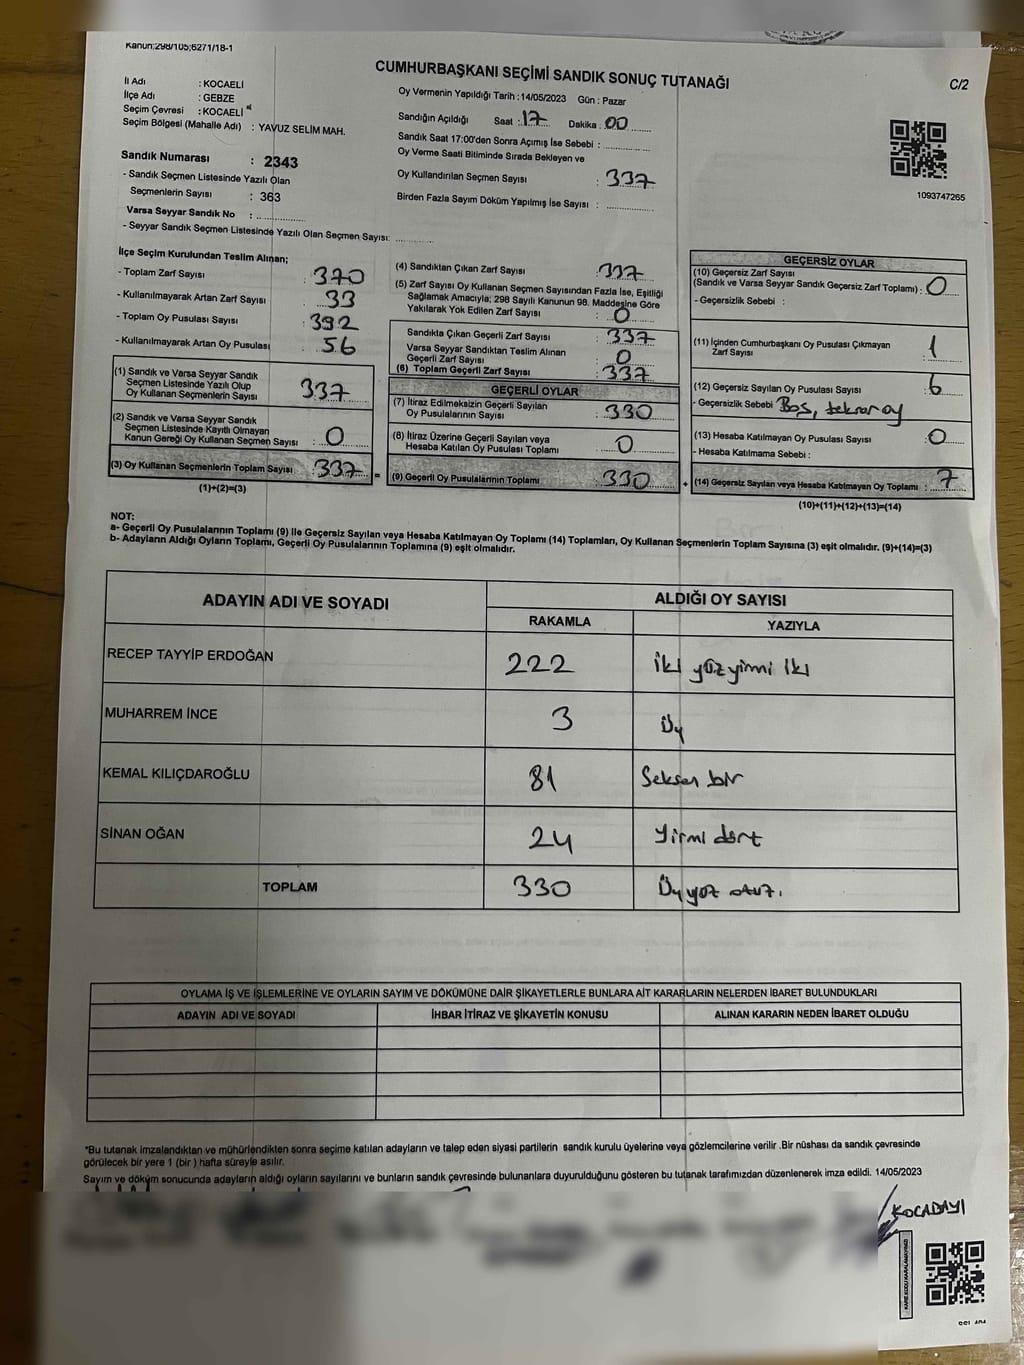 Kanun;298/105;6271/18-1
CUMHURBAŞKANI SEÇİMİ SANDIK SONUÇ TUTANAĞI
C/2
İl Adı : KOCAELİ
İlçe Adı : GEBZE
Seçim Çevresi : KOCAELİ
Seçim Bölgesi (Mahalle Adı) : YAVUZ SELİM MAH.
Sandık Numarası : 2343
- Sandık Seçmen Listesinde Yazılı Olan
Seçmenlerin Sayısı : 363
Varsa Seyyar Sandık No :
- Seyyar Sandık Seçmen Listesinde Yazılı Olan Seçmen Sayısı:
Oy Vermenin Yapıldığı Tarih : 14/05/2023 Gün : Pazar
Sandığın Açıldığı Saat : 17 Dakika : 00
Sandık Saat 17:00'den Sonra Açımış İse Sebebi :
Oy Verme Saati Bitiminde Sırada Bekleyen ve
Oy Kullandırılan Seçmen Sayısı : 337
Birden Fazla Sayım Döküm Yapılmış İse Sayısı :
1093747265
İlçe Seçim Kurulundan Teslim Alınan;
- Toplam Zarf Sayısı : 370
- Kullanılmayarak Artan Zarf Sayısı : 33
- Toplam Oy Pusulası Sayısı : 392
- Kullanılmayarak Artan Oy Pusulası : 56
(1) Sandık ve Varsa Seyyar Sandık
Seçmen Listesinde Yazılı Olup
Oy Kullanan Seçmenlerin Sayısı : 337
(2) Sandık ve Varsa Seyyar Sandık
Seçmen Listesinde Kayıtlı Olmayan
Kanun Gereği Oy Kullanan Seçmen Sayısı : 0
(3) Oy Kullanan Seçmenlerin Toplam Sayısı : 337 =
(1)+(2)=(3)
(4) Sandıktan Çıkan Zarf Sayısı : 337
(5) Zarf Sayısı Oy Kullanan Seçmen Sayısından Fazla İse, Eşitliği
Sağlamak Amacıyla; 298 Sayılı Kanunun 98. Maddesine Göre
Yakılarak Yok Edilen Zarf Sayısı : 0
Sandıkta Çıkan Geçerli Zarf Sayısı : 337
Varsa Seyyar Sandıktan Teslim Alınan
Geçerli Zarf Sayısı : 0
(6) Toplam Geçerli Zarf Sayısı : 337
GEÇERLİ OYLAR
(7) İtiraz Edilmeksizin Geçerli Sayılan
Oy Pusulalarının Sayısı : 330
(8) İtiraz Üzerine Geçerli Sayılan veya
Hesaba Katılan Oy Pusulası Toplamı : 0
(9) Geçerli Oy Pusulalarının Toplamı : 330 +
GEÇERSİZ OYLAR
(10) Geçersiz Zarf Sayısı
(Sandık ve Varsa Seyyar Sandık Geçersiz Zarf Toplamı) : 0
- Geçersizlik Sebebi :
(11) İçinden Cumhurbaşkanı Oy Pusulası Çıkmayan
Zarf Sayısı : 1
(12) Geçersiz Sayılan Oy Pusulası Sayısı : 6
- Geçersizlik Sebebi Boş, tekrar oy
(13) Hesaba Katılmayan Oy Pusulası Sayısı : 0
- Hesaba Katılmama Sebebi :
(14) Geçersiz Sayılan veya Hesaba Katılmayan Oy Toplamı : 7
(10)+(11)+(12)+(13)=(14)
NOT:
a- Geçerli Oy Pusulalarının Toplamı (9) ile Geçersiz Sayılan veya Hesaba Katılmayan Oy Toplamı (14) Toplamları, Oy Kullanan Seçmenlerin Toplam Sayısına (3) eşit olmalıdır. (9)+(14)=(3)
b- Adayların Aldığı Oyların Toplamı, Geçerli Oy Pusulalarının Toplamına (9) eşit olmalıdır.
ADAYIN ADI VE SOYADI
ALDIĞI OY SAYISI
RAKAMLA YAZIYLA
RECEP TAYYİP ERDOĞAN 222 İki yüzyirmi iki
MUHARREM İNCE 3 Üç
KEMAL KILIÇDAROĞLU 81 Seksen bir
SİNAN OĞAN 24 Yirmi dört
TOPLAM 330 Üçyüz otuz.
OYLAMA İŞ VE İŞLEMLERİNE VE OYLARIN SAYIM VE DÖKÜMÜNE DAİR ŞİKAYETLERLE BUNLARA AİT KARARLARIN NELERDEN İBARET BULUNDUKLARI
ADAYIN ADI VE SOYADI İHBAR İTİRAZ VE ŞİKAYETİN KONUSU ALINAN KARARIN NEDEN İBARET OLDUĞU
*Bu tutanak imzalandıktan ve mühürlendikten sonra seçime katılan adayların ve talep eden siyasi partilerin sandık kurulu üyelerine veya gözlemcilerine verilir .Bir nüshası da sandık çevresinde
görülecek bir yere 1 (bir ) hafta süreyle asılır.
Sayım ve döküm sonucunda adayların aldığı oyların sayılarını ve bunların sandık çevresinde bulunanlara duyurulduğunu gösteren bu tutanak tarafımızdan düzenlenerek imza edildi. 14/05/2023
KOCADAYI
KARE KODU KARALAMAYINIZ!